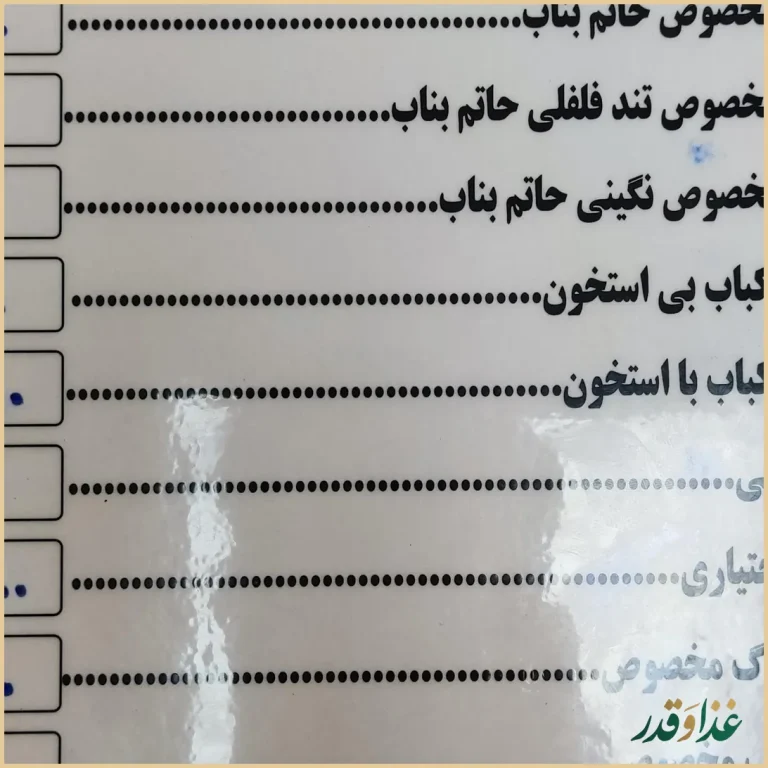 مخصوص حاتم بناب
مخصوص تند فلفلی حاتم بناب
مخصوص نگینی حاتم بناب
کباب بی استخون
کباب با استخون
مخصوص
غذا و قدر